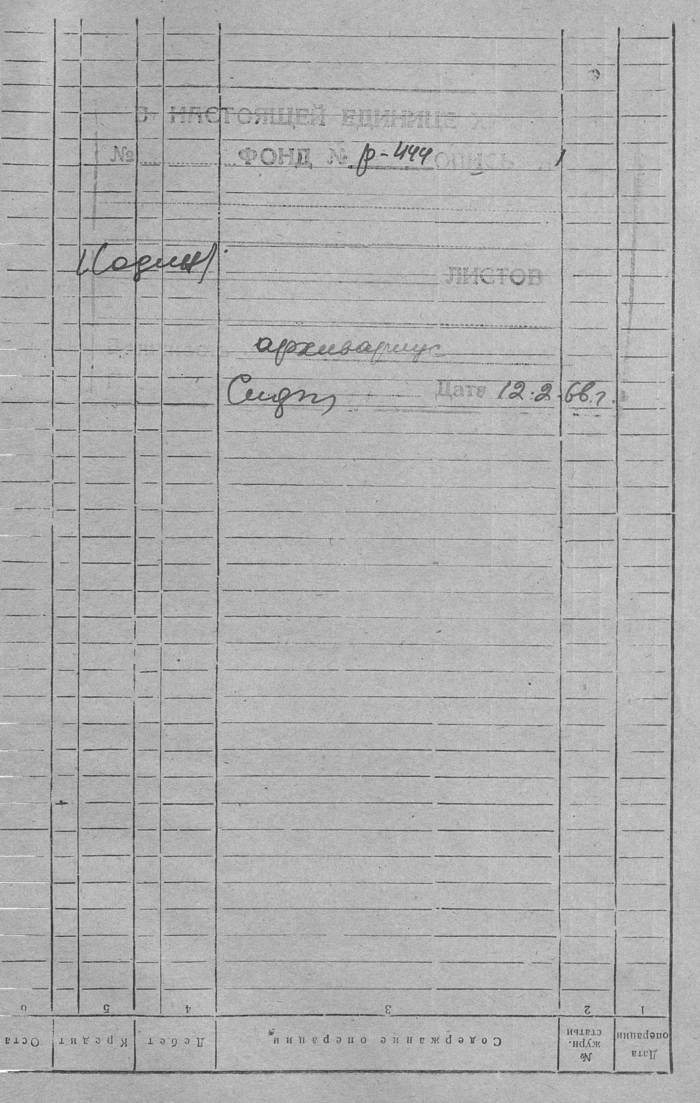 В НАСТОЯЩЕЙ ЕДИНИЦЕ
№ ФОНД № р-444 ОПИСЬ 1
1 (один)
ЛИСТОВ
архивариус
Дата 12.2.68.г.
6 5 4 3 2 1
Оста Кредит Дебет Содержание операции № журн. статьи Дата операции